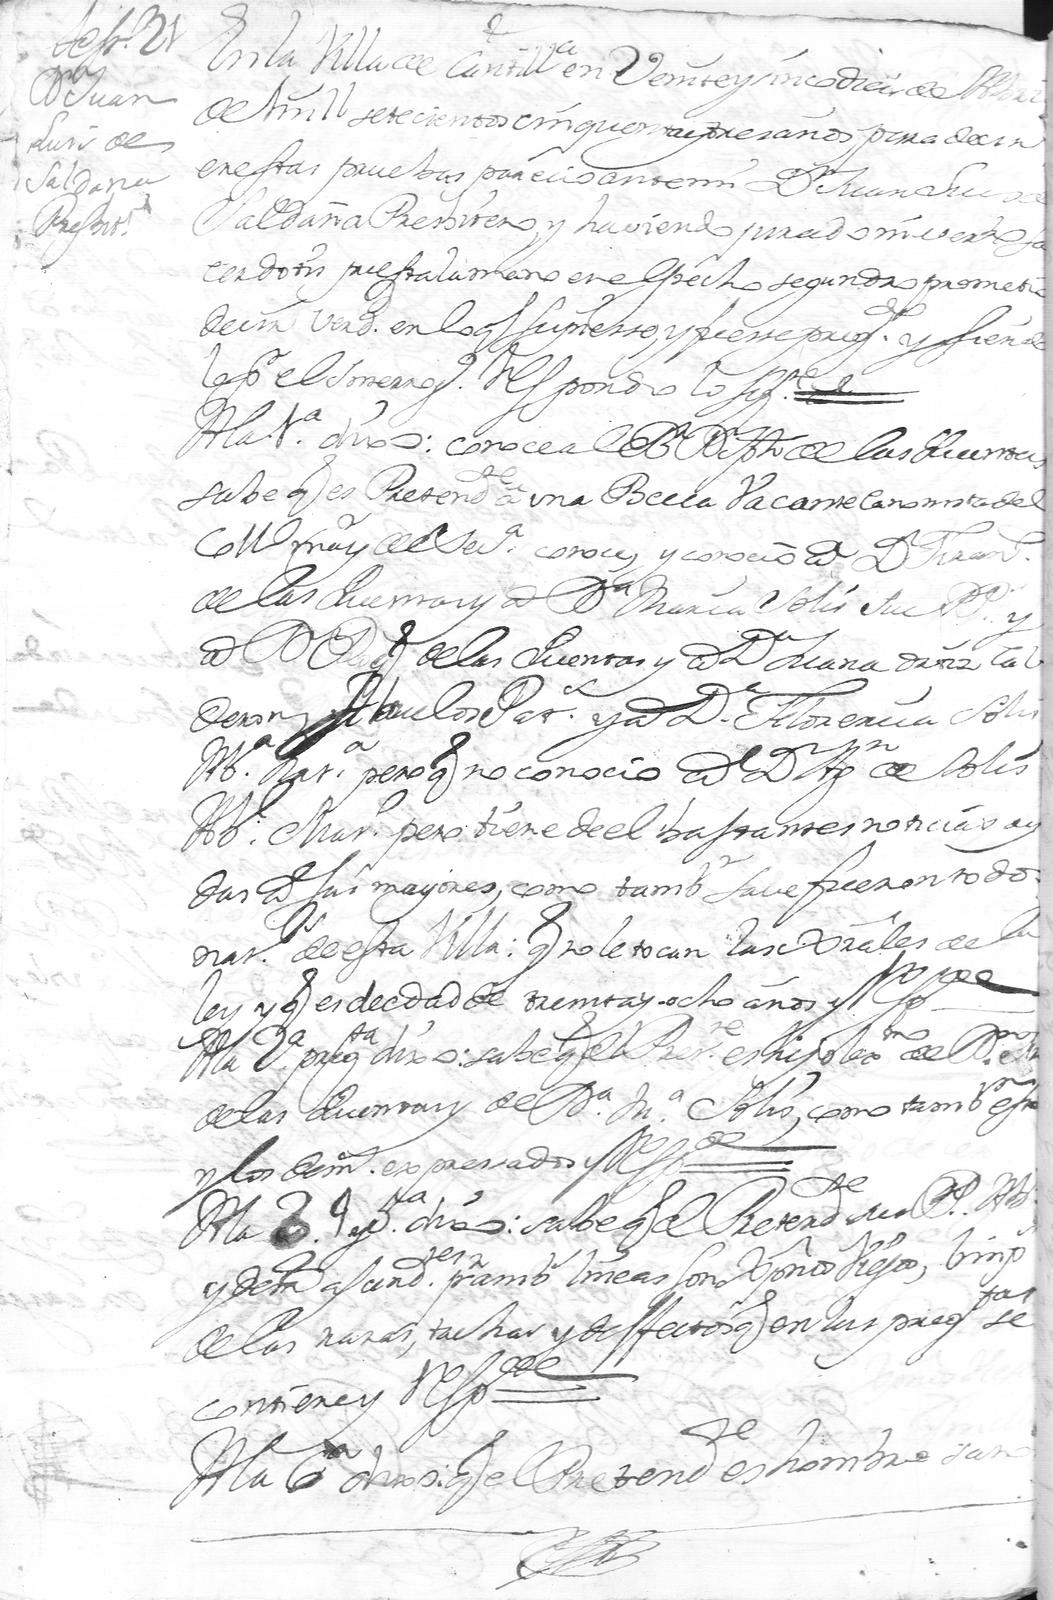 Test. 21
Dn Juan
Luis de
Saldaña
Presbit.o
En la Villa de Cantill.a en Veinte y cinco dias de Abril
de mill setecientos cinquenta y tres años para decir
en estas pruebas parecio ante mi Dn Juan Luis de
Saldaña Presvitero, y haviendo jurado in verbo sa
cerdotis puesta la mano en el pecho segun dro prometio
decir verd. en lo q supiesse, y fuesse preg.do y siendo
lo p.r el Interrog. Respondio lo sig.te
A la 1.a dixo: conoce al Br Dn Jph de las Cuentas
sabe q es Pretend.te a una Becca Vacante Canonista del
Coll. may.r de Sev.a conoce, y conocio a Dn Fran.
de las Cuentas y a D.a Maria Solis sus PP. y
a Dn Diego de las Cuentas y a D.a Juana
Abuelos Pat.s y a D.a Florencia Solis
Ab.a Mat.a pero q no conocio a Dn de Solis
Ab. Mat. pero tiene de el bastantes noticias oy
das a sus mayores, como tamb.n save fueron todos
nat.s de esta Villa: q no le tocan las Xrales de la
ley y q es de edad de treinta y ocho años y Resp.de
A la 2.a preg.ta dixo: sabe q el Pret.te es hijo lex.mo de Dn
de las Cuentas y de D.a M.a Solis, como tamb.n
y los dem. expresados y Resp.de
A la 3. y p.a dixo: sabe q el Pretend.te sus P. Ab.
y demas ascend.tes p.r amb.s lineas son Xptnos Viejos, limp.s
de las razas, tachas y deffectos q en las preg.tas se
contiene y Resp.de
A la 6.a dixo: q el Pretend.te es hombre sano